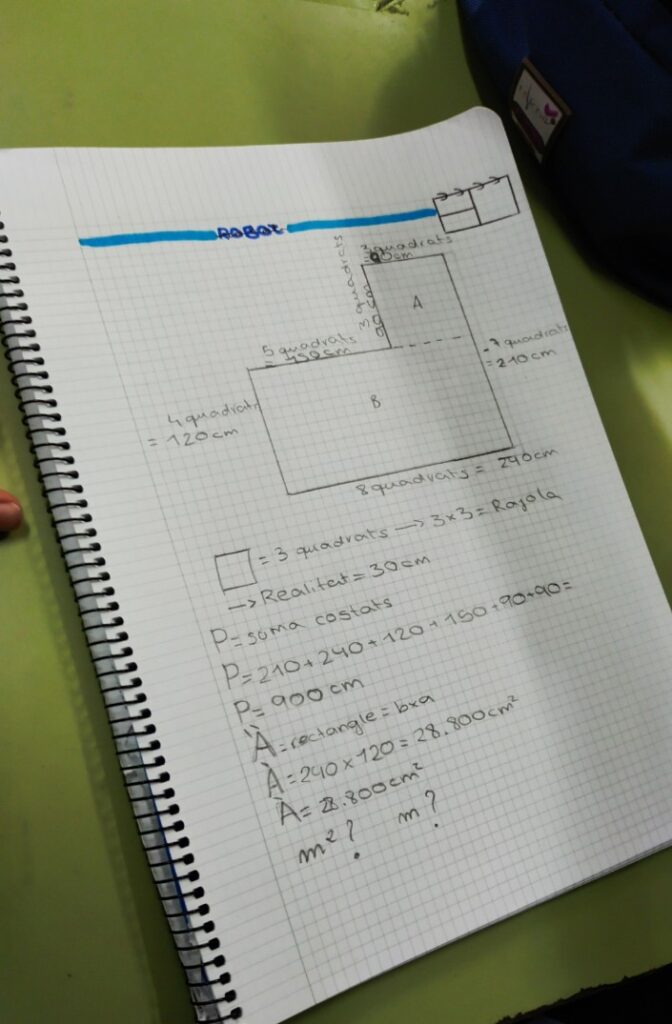 ROBOT
3 quadrats
90cm
3 quadrats
90 cm
A
5 quadrats
= 150cm
7 quadrats
= 210cm
4 quadrats
= 120cm
B
8 quadrats = 240cm
= 3 quadrats → 3x3 = Rajola
→ Realitat = 30cm
P= suma costats
P= 210 + 240 + 120 + 150 + 90 + 90 =
P= 900 cm
À = rectangle = bxa
À = 240 x 120 = 28.800 cm²
À = 28.800 cm²
m² ? m ?